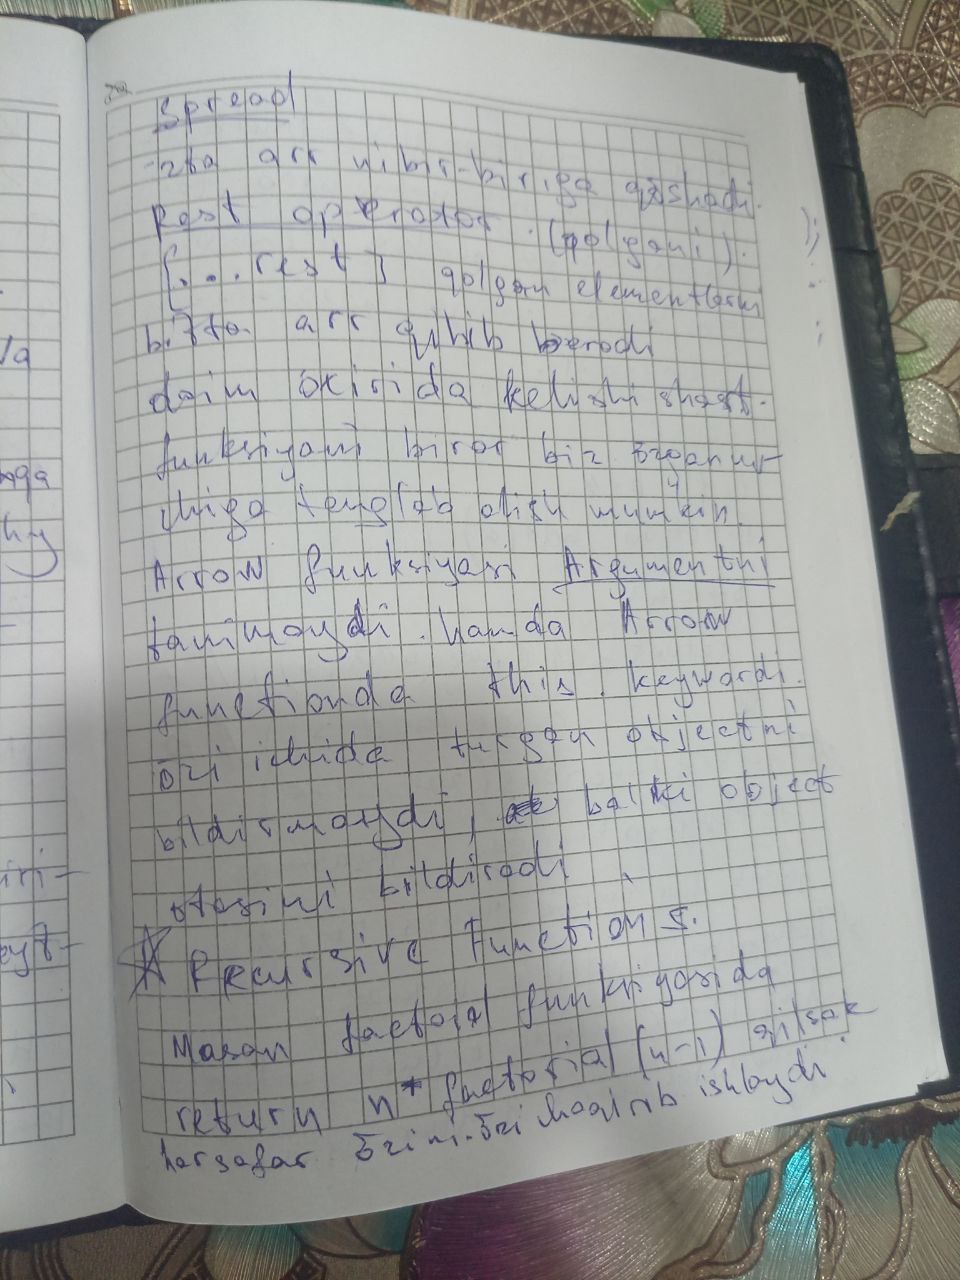 Spread
-2ta arr ni bir-biriga qo'shadi.
Rest operator (qolgani).
[...rest] qolgan elementlarni
bitta arr qilib beradi
doim oxirida kelishi shart.
funksiyani biror bir õzgaruv-
chiga tenglab olish mumkin.
Arrow funksiyasi Argumentni
tanimaydi. hamda Arrow
functionda this keywordi.
õzi ichida turgan objectni
bildirmaydi, balki object
otasini bildiradi
Recursive Functions.
Masan factorial funksiyasida
return n* factorial (n-1) qilsak
har safar õzini-õzi chaqirib ishlaydi.
/a
hy